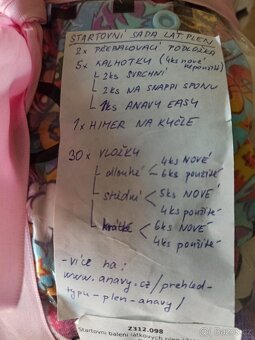 STARTOVNÍ SADA LAT. PLEN
2x PŘEBALOVACÍ PODLOŽKA
5x KALHOTKY (4ks nové nepoužité)
2ks SVRCHNÍ
2ks NA SNAPPI SPONU
1ks ANAVY EASY
1x HIMER NA KYČLE
30x VLOŽKY
dlouhé 4ks NOVÉ
6ks použité
střední 5ks NOVÉ
4ks použité
krátké 6ks NOVÉ
4ks použité
- více na:
www.anavy.cz/prehled-
typu-plen-anavy/
2312.098
Startovní balení látkových plen